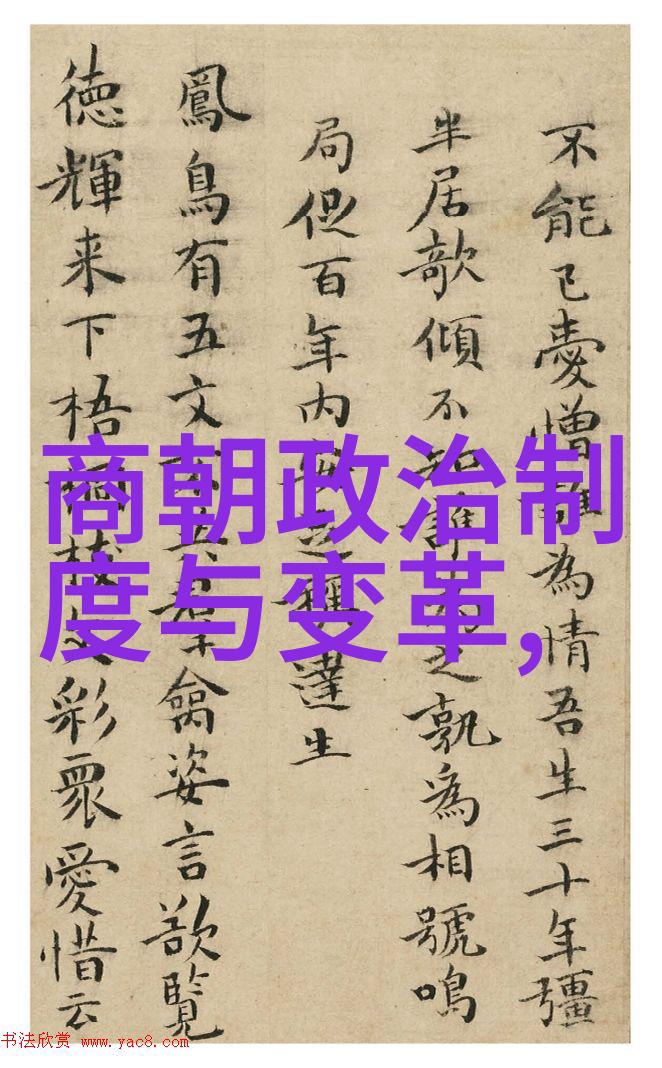 商朝政治制
度与变革,
不能已憎為情吾生三十年彊
半居欹傾不知誰之孰為相號鳴
局促百年內達生
鳳鳥有五文不禽姿言欲覽
徳輝来下梧桐枝文彩眾愛惜云
书法欣赏 www.yac8.com